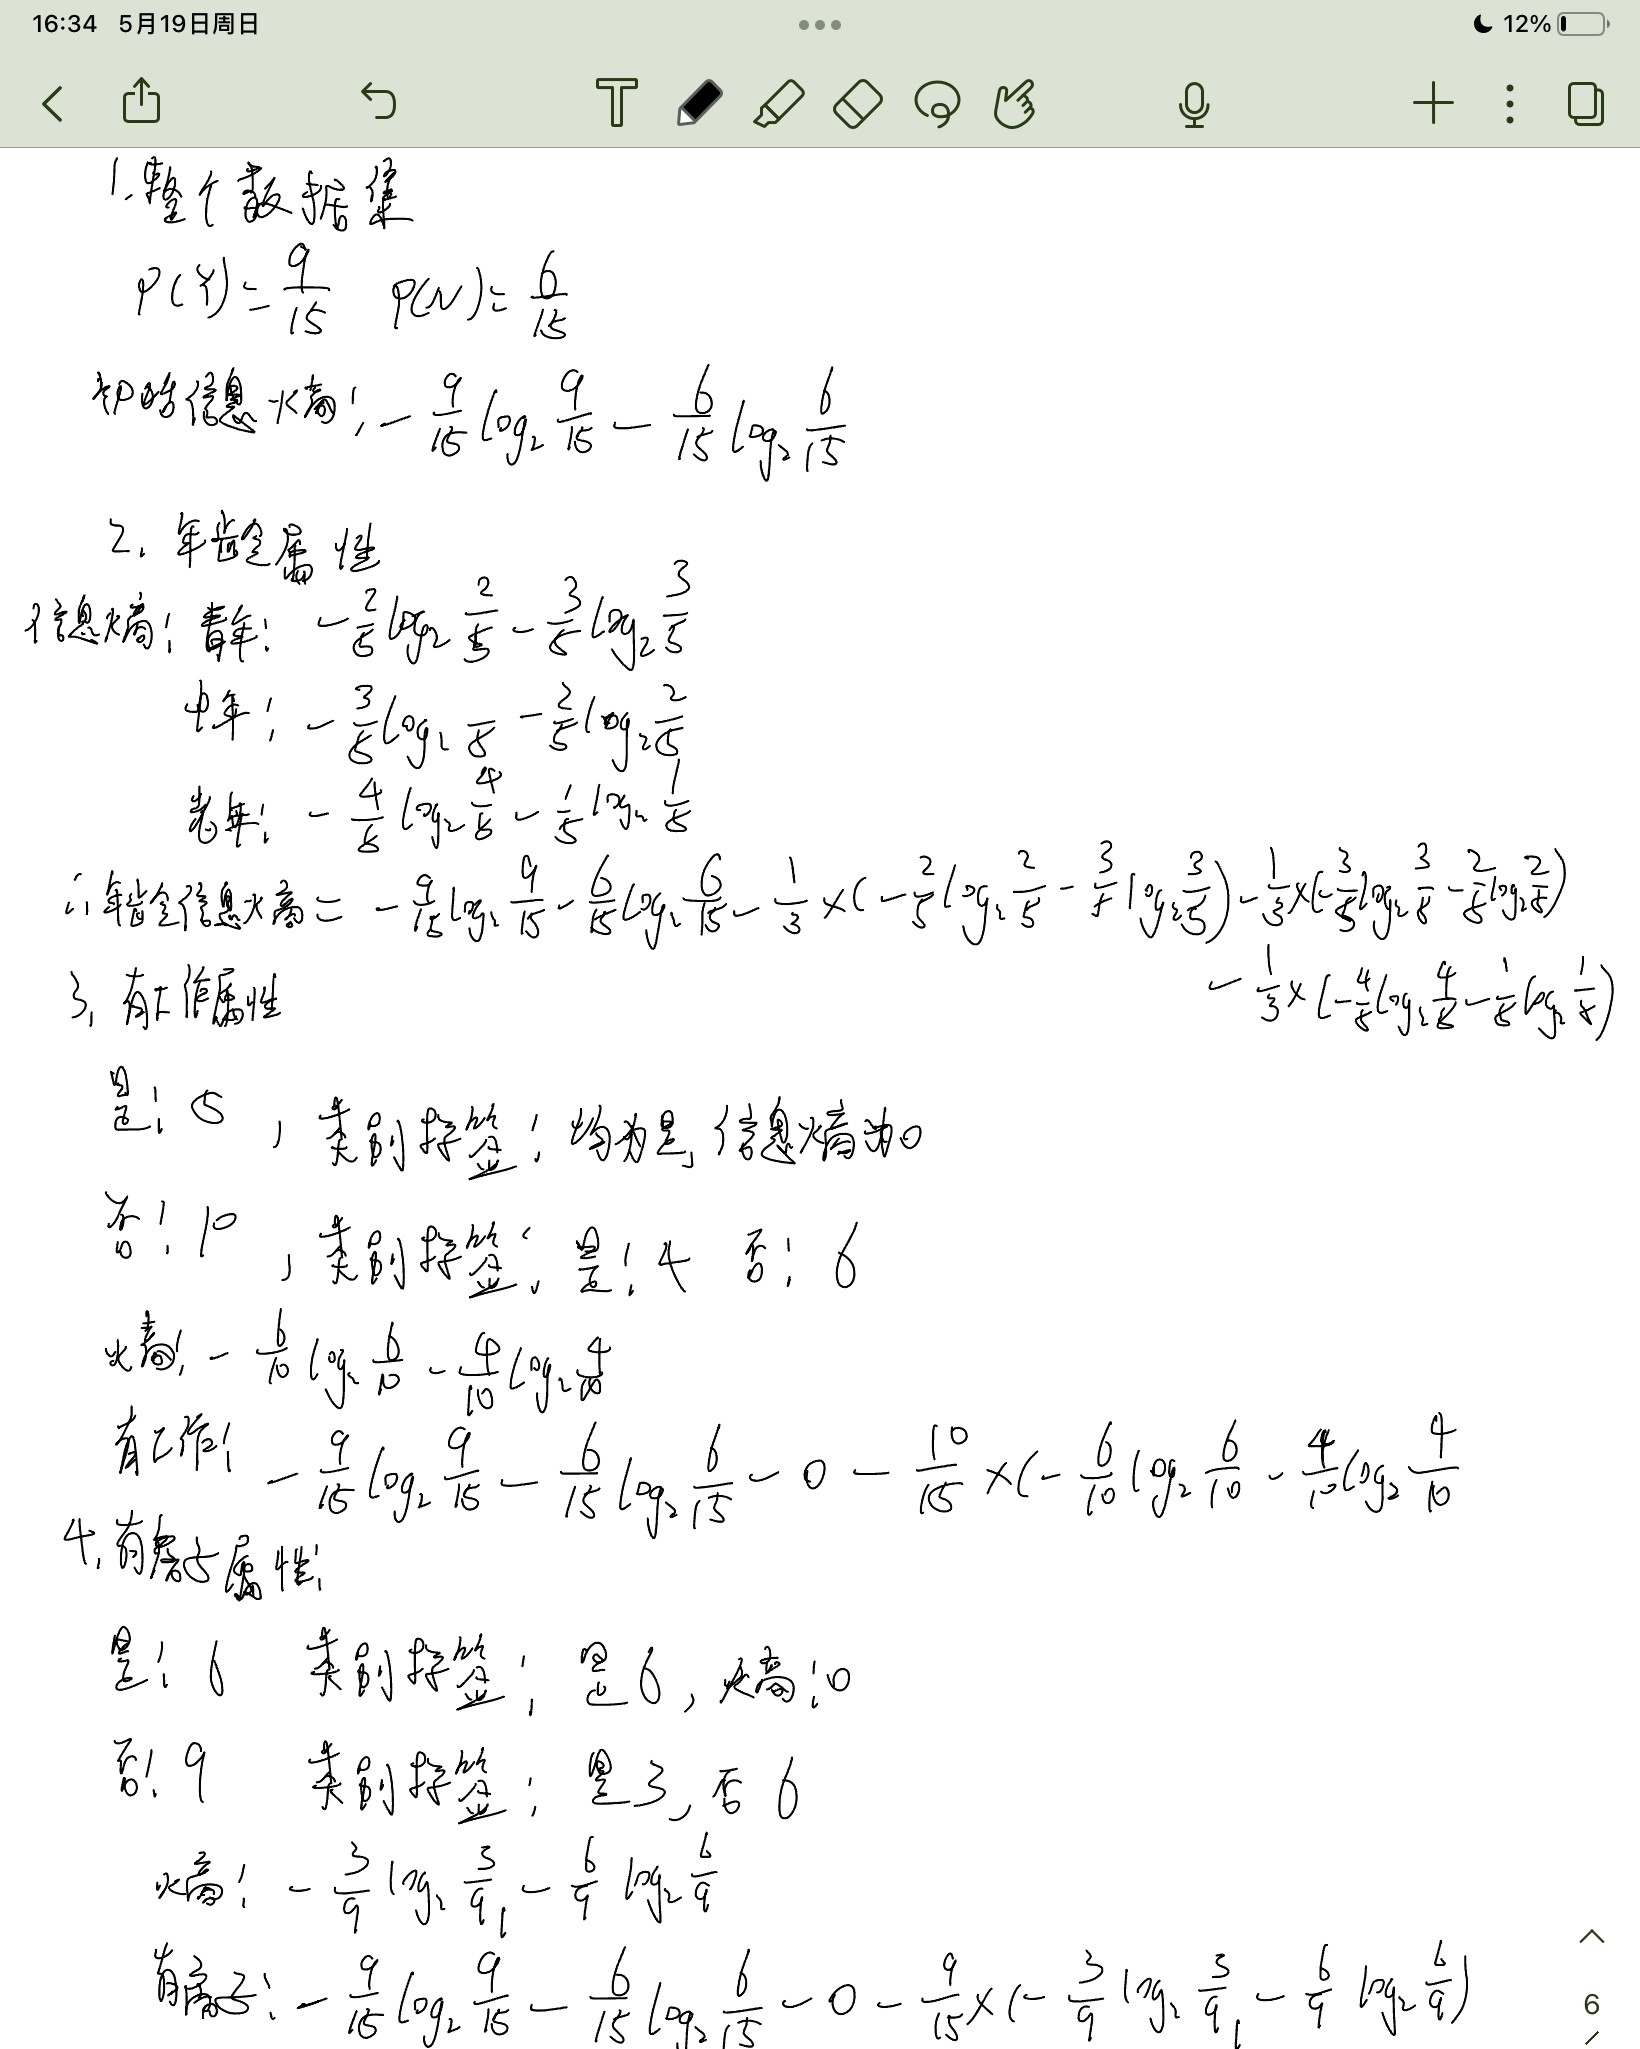 16:34 5月19日周日 12%
T
1.整个数据集
P(Y)=9/15 P(N)=6/15
初始信息熵:-9/15log₂9/15-6/15log₂6/15
2.年龄属性
信息熵:青年:-2/5log₂2/5-3/5log₂3/5
中年:-3/5log₂ /5-2/5log₂2/5
老年:-4/5log₂4/5-1/5log₂1/5
∴年龄信息熵=-9/15log₂9/15-6/15log₂6/15-1/3×(-2/5log₂2/5-3/5log₂3/5)-1/3×(-3/5log₂3/5-2/5log₂2/5)
-1/3×(-4/5log₂4/5-1/5log₂1/5)
3.有工作属性
是:5,类别标签:均为是,信息熵为0
否:10,类别标签:是:4 否:6
熵:-6/10log₂6/10-4/10log₂4/10
有工作:-9/15log₂9/15-6/15log₂6/15-0-10/15×(-6/10log₂6/10-4/10log₂4/10
4.有房子属性:
是:6 类别标签:是6,熵:0
否:9 类别标签:是3,否6
熵:-3/9log₂3/9-6/9log₂6/9
有房子:-9/15log₂9/15-6/15log₂6/15-0-9/15×(-3/9log₂3/9-6/9log₂6/9)
6
/